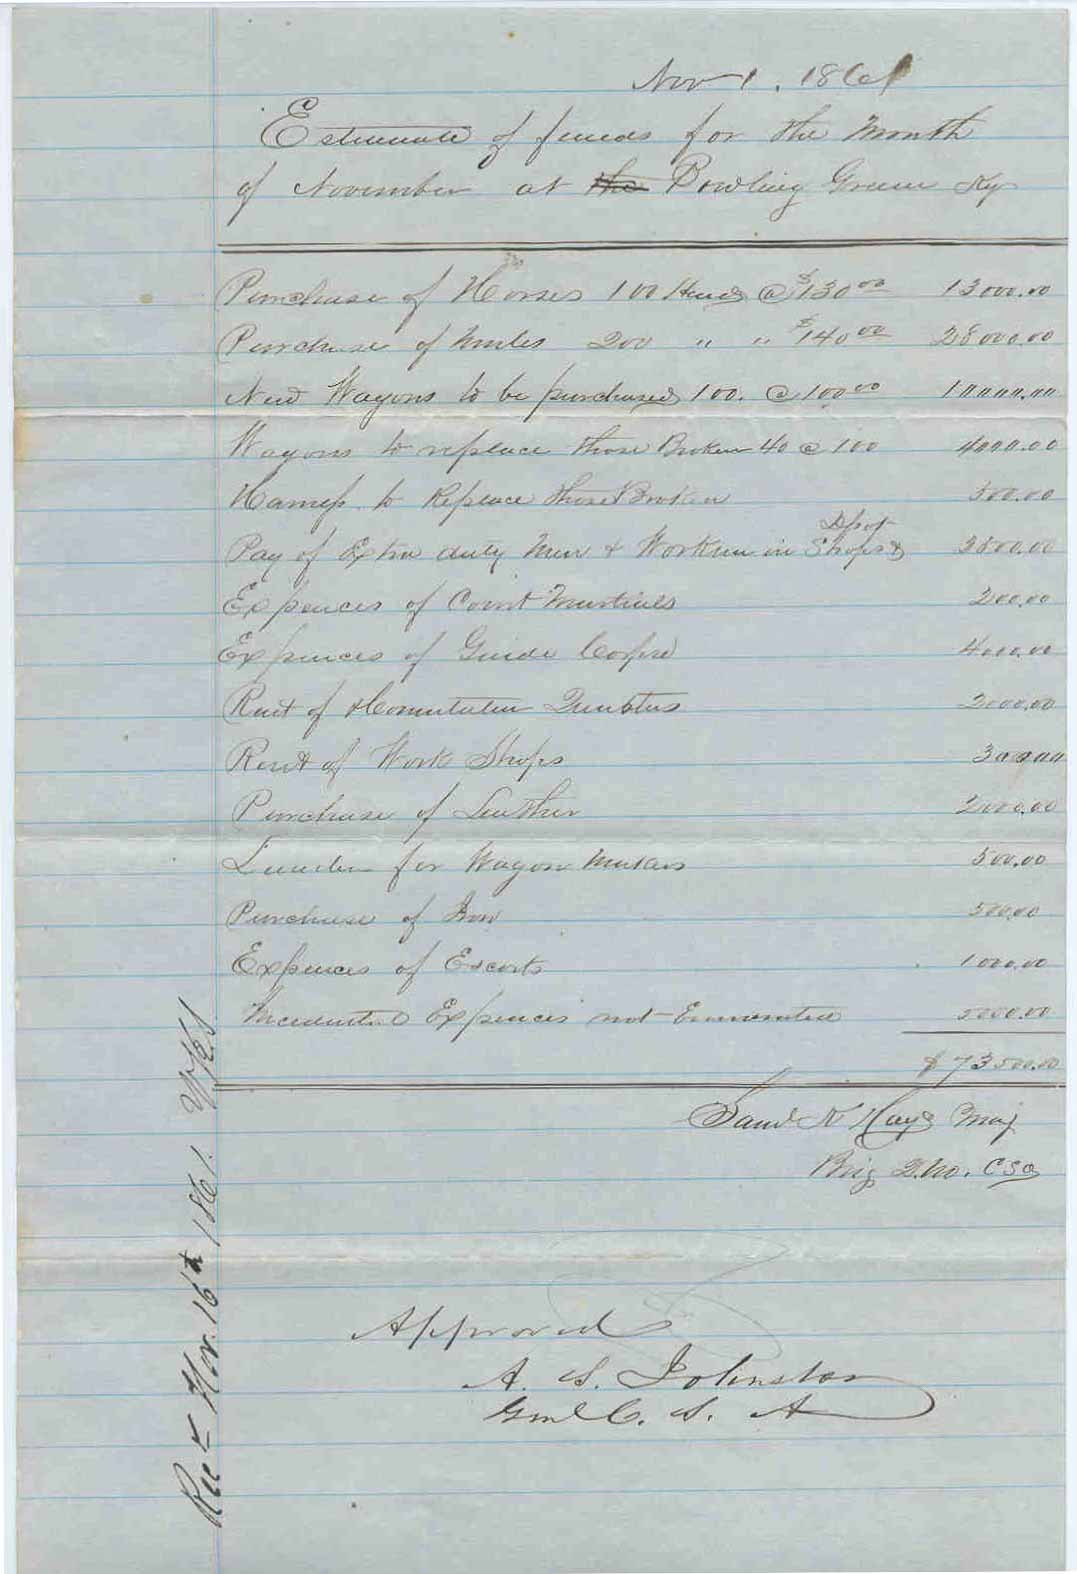 Nov 1. 1861
Estimate of funds for the Month
of November at the Bowling Green Ky
Purchase of Horses 100 Head @ $130 00 13000.00
Purchase of Mules 200 " " $140 00 28000.00
New Wagons to be purchased 100. @ 100 00 10000.00
Wagons to replace those Broken 40 @ 100 4000.00
Harness to Replace those Broken 500.00
Pay of Extra duty Men & Workmen in Depot Shops 2500.00
Expences of Court Martials 200.00
Expences of Guide Corps 4000.00
Rent of & Commutation Quarters 2000.00
Rent of Work Shops 300.00
Purchase of Leather 2000.00
Lumber for Wagon Makers 500.00
Purchase of Iron 500.00
Expences of Escorts 1000.00
Incidental Expences not Enumerated 5000.00
$73500.00
Saml K Hays Maj
Brig Q.M. CSA
Approved
A. S. Johnston
Genl C. S. A
Recd Nov. 16th 1861.